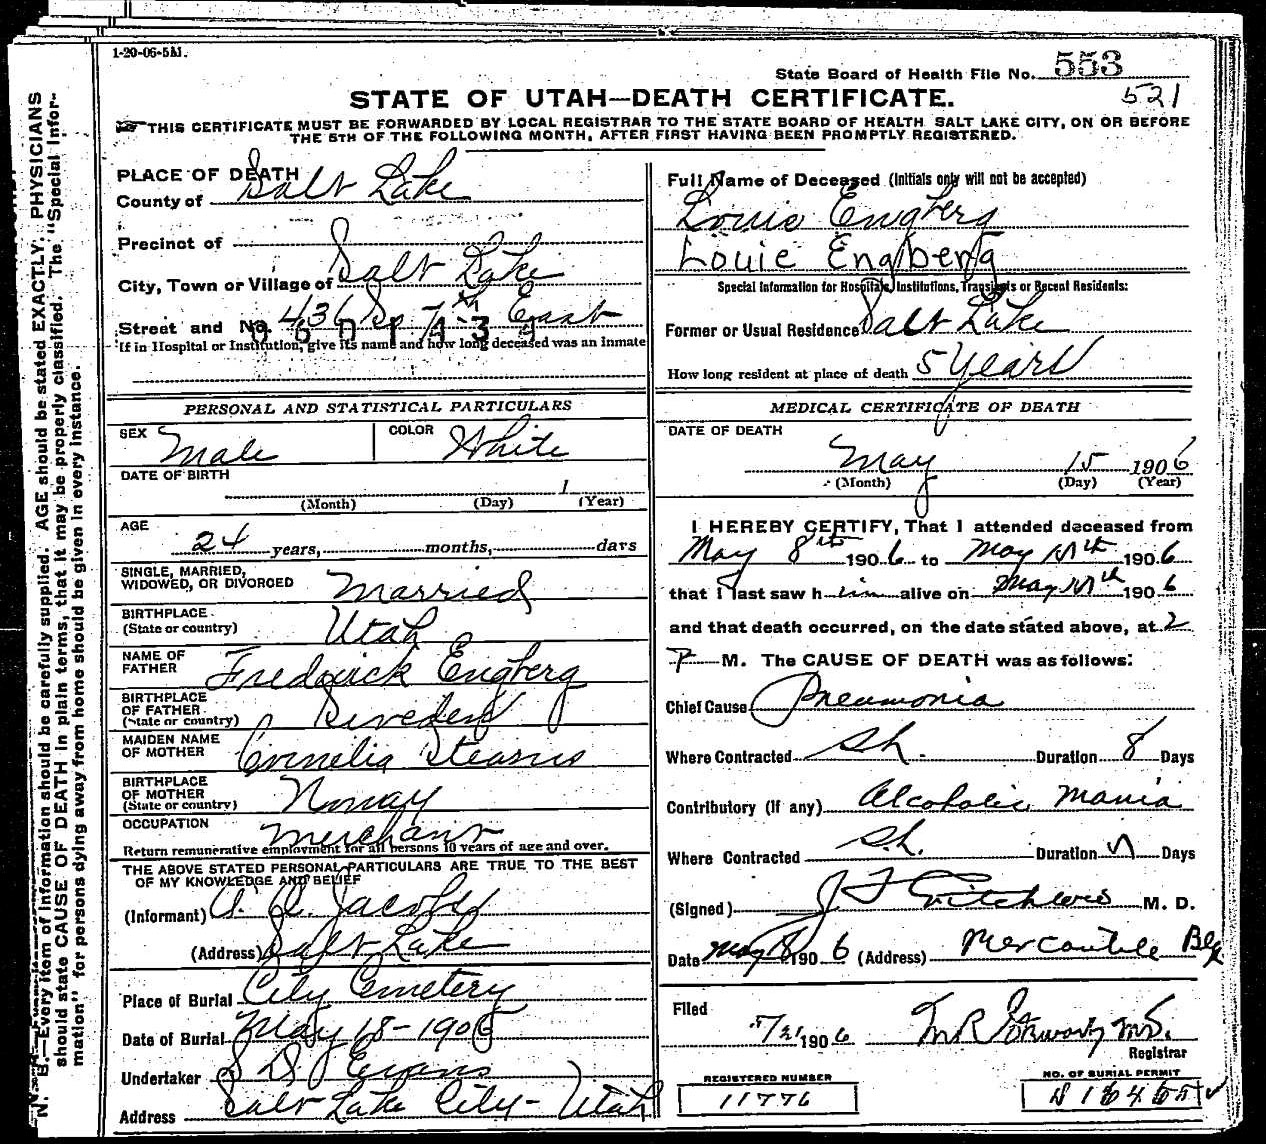 1-20-06-5M.
State Board of Health File No. 553
521
STATE OF UTAH—DEATH CERTIFICATE.
THIS CERTIFICATE MUST BE FORWARDED BY LOCAL REGISTRAR TO THE STATE BOARD OF HEALTH SALT LAKE CITY, ON OR BEFORE
THE 5TH OF THE FOLLOWING MONTH, AFTER FIRST HAVING BEEN PROMPTLY REGISTERED.
N. B.—Every item of information should be carefully supplied. AGE should be stated EXACTLY. PHYSICIANS
should state CAUSE OF DEATH in plain terms, that it may be properly classified. The "Special Infor-
mation" for persons dying away from home should be given in every instance.
PLACE OF DEATH
County of Salt Lake
Precinct of
City, Town or Village of Salt Lake
Street and No. 436 So 7th East
If in Hospital or Institution, give its name and how long deceased was an inmate
PERSONAL AND STATISTICAL PARTICULARS
SEX Male COLOR White
DATE OF BIRTH
1
(Month) (Day) (Year)
AGE
24 years, months, days
SINGLE, MARRIED,
WIDOWED, OR DIVORCED Married
BIRTHPLACE
(State or country) Utah
NAME OF
FATHER Fredrick Engberg
BIRTHPLACE
OF FATHER
(State or country) Sweden
MAIDEN NAME
OF MOTHER Cornelia Stearns
BIRTHPLACE
OF MOTHER
(State or country) Norway
OCCUPATION Merchant
Return remunerative employment for all persons 10 years of age and over.
THE ABOVE STATED PERSONAL PARTICULARS ARE TRUE TO THE BEST
OF MY KNOWLEDGE AND BELIEF
(Informant) Jacobs
(Address) Salt Lake
Place of Burial City Cemetery
Date of Burial May 18-1906
Undertaker S D Evans
Address Salt Lake City - Utah
Full Name of Deceased (Initials only will not be accepted)
Louie Engberg
Louie Engberg
Special Information for Hospitals, Institutions, Transients or Recent Residents:
Former or Usual Residence Salt Lake
How long resident at place of death 5 Years
MEDICAL CERTIFICATE OF DEATH
DATE OF DEATH
May 15 1906
(Month) (Day) (Year)
I HEREBY CERTIFY, That I attended deceased from
May 8th 1906 to May 15th 1906
that I last saw him alive on May 15th 1906
and that death occurred, on the date stated above, at 2
P M. The CAUSE OF DEATH was as follows:
Chief Cause Pneumonia
Where Contracted S.L. Duration 8 Days
Contributory (If any) Alcoholic Mania
Where Contracted S.L. Duration 5 Days
(Signed) J F Critchlow M. D.
Date May 1906 (Address) Mercantile Blg
Filed
5/21 1906
Registrar
REGISTERED NUMBER
11776
NO. OF BURIAL PERMIT